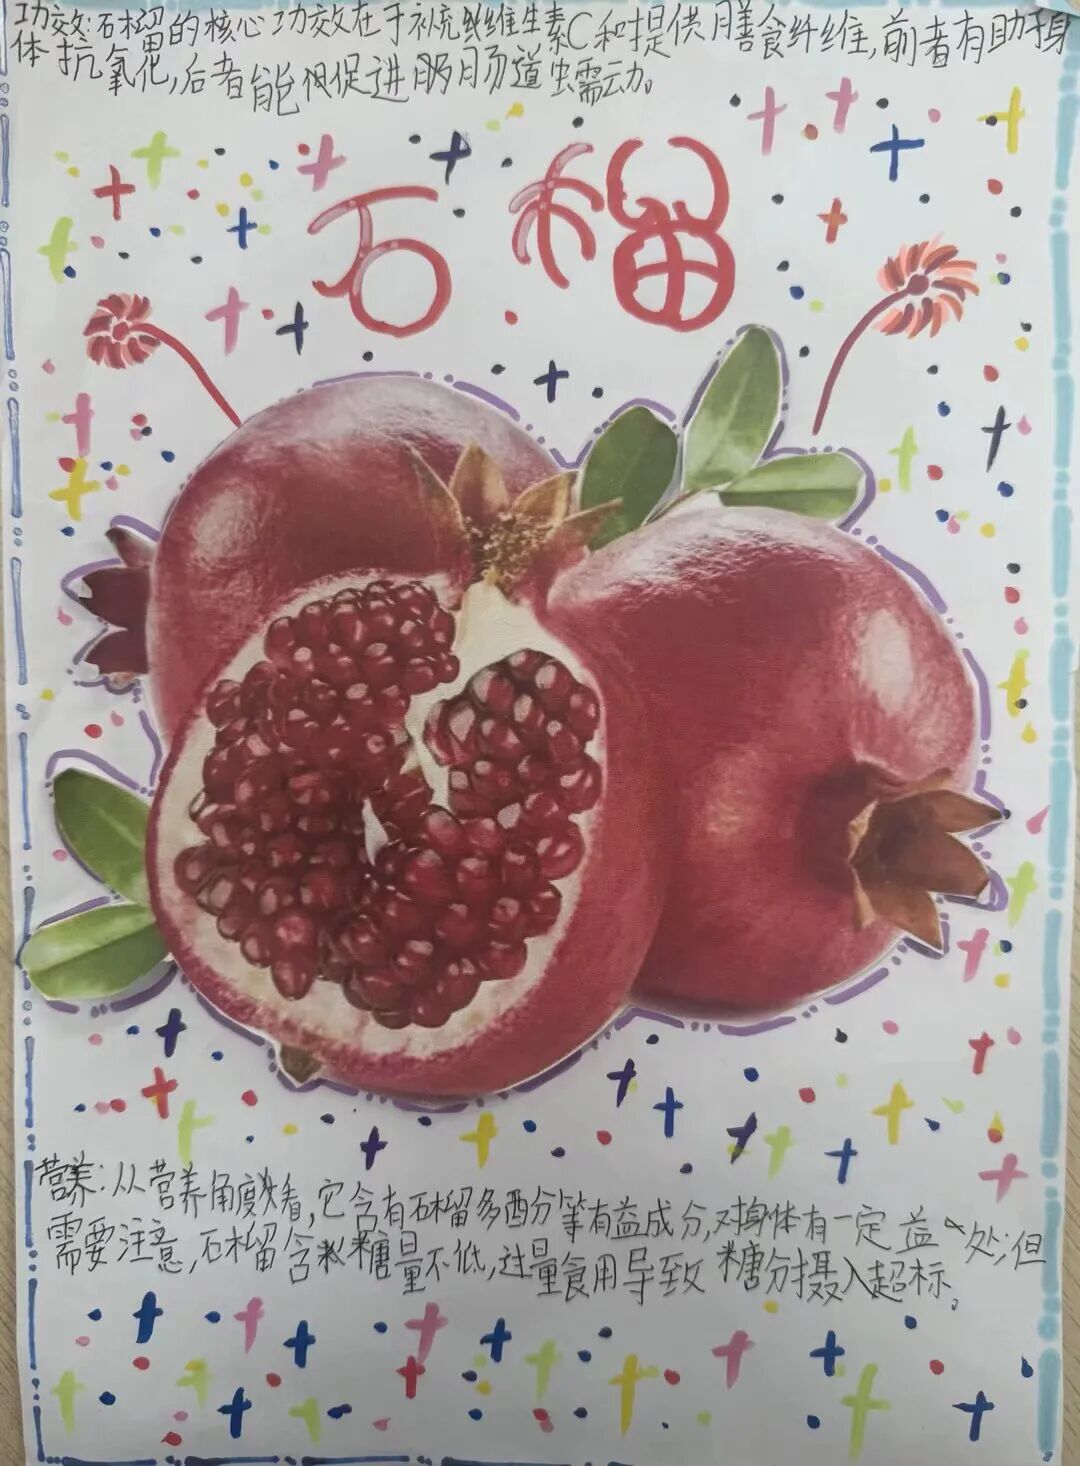 功效:石榴的核心功效在于补充维生素C和提供膳食纤维,前者有助身
体抗氧化,后者能促进肠道蠕动。
石榴
营养:从营养角度看,它含有石榴多酚等有益成分,对身体有一定益处;但
需要注意,石榴含糖量不低,过量食用导致糖分摄入超标。